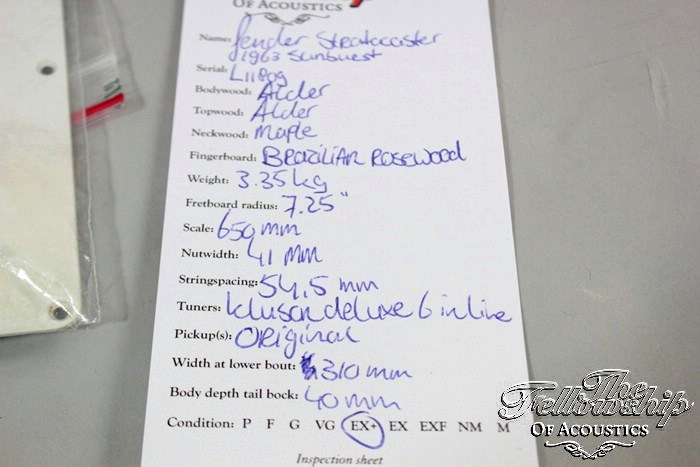 OF ACOUSTICS
Name: Fender Stratocaster
1963 Sunburst
Serial: L11809
Bodywood: Alder
Topwood: Alder
Neckwood: Maple
Fingerboard: BRAZILIAN ROSEWOOD
Weight: 3.35kg
Fretboard radius: 7.25"
Scale: 650 mm
Nutwidth: 41 mm
Stringspacing: 54,5 mm
Tuners: Kluson deluxe 6 in line
Pickup(s): ORiginal
Width at lower bout: 310 mm
Body depth tail bock: 40 mm
Condition: P F G VG EX+ EX EXF NM M
Inspection sheet
The
Fellowship
OF ACOUSTICS